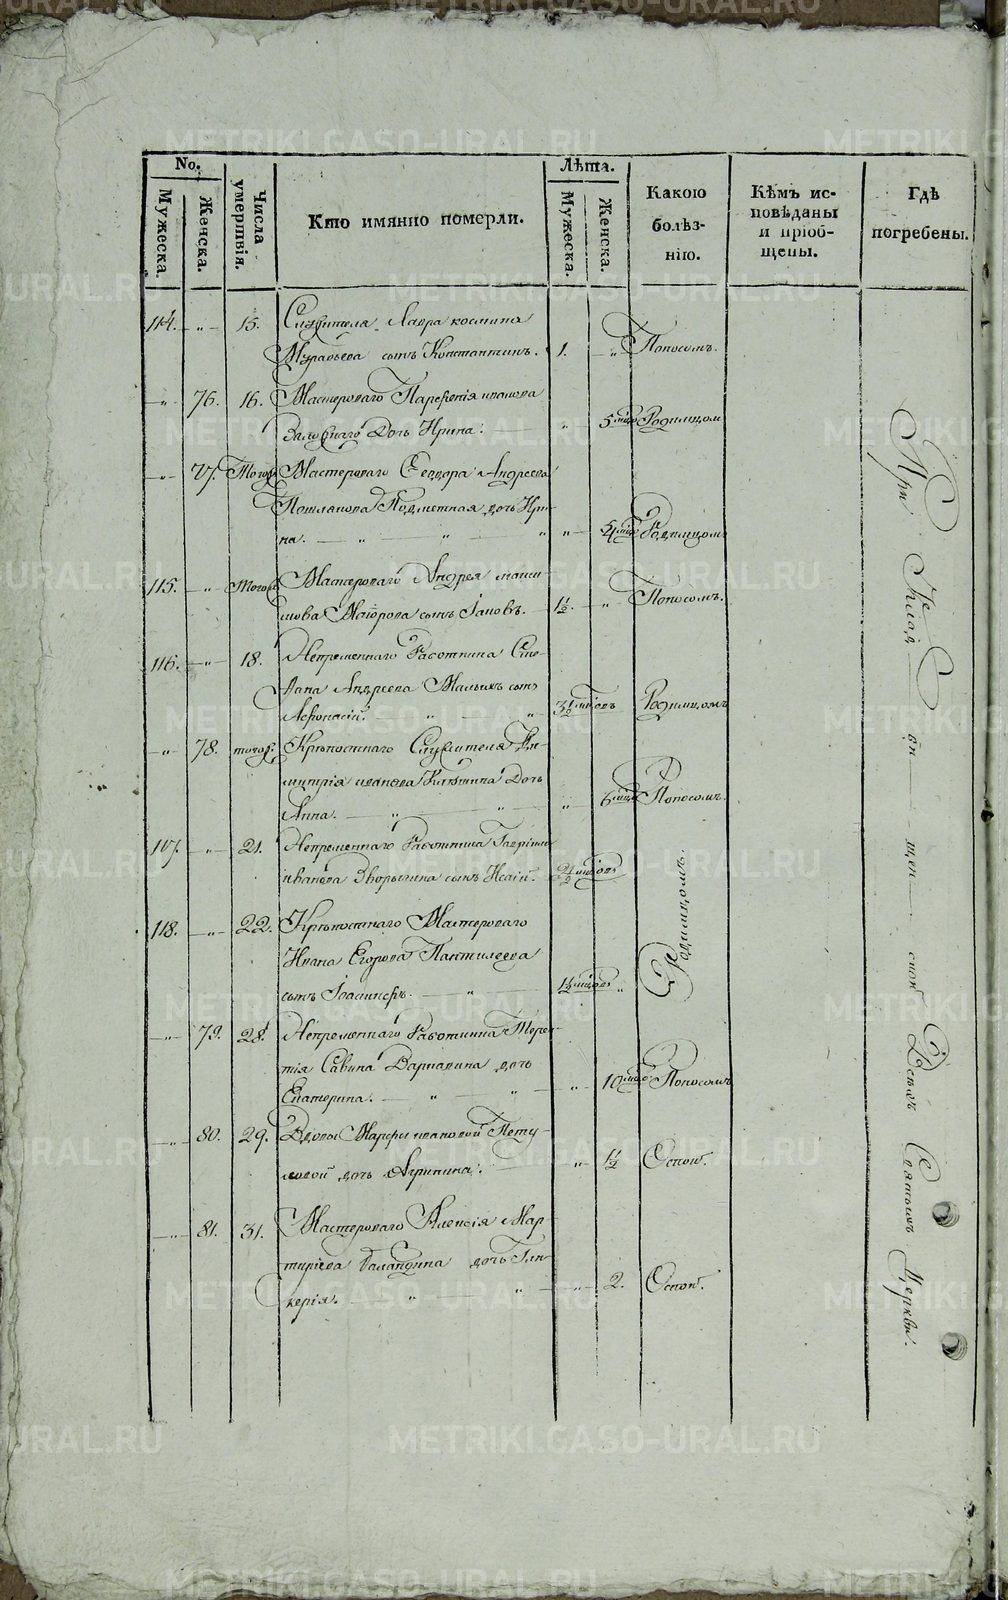 No.
Мужеска.
Женска.
Числа умертвія.
Кто имянно померли.
Лѣта.
Мужеска.
Женска.
Какою болѣз-
нію.
Кѣмъ ис-
повѣданы
и пріоб-
щены.
Гдѣ
погребены.
114. — „ — 15. Служителя Лавра космина
Муравьева сынъ Константинъ. 1. „ Поносомъ.
„ 76. 16. Мастероваго Парѳенія иванова
дочь Ирина. „ 5 Родимцом
„ 77. Тогож Мастероваго Ѳеодора Андреева
Подметная дочь Ири-
на. — „ „ „ „ Родимцом
115. „ Тогож Мастероваго Андрея макси-
мова сынъ Іаковъ. 1½. „ Поносомъ.
116. „ 18. Непременнаго Работника Сте-
пана Андреева Малыхъ сынъ
Афонасій. „ „ 3½ мцовъ Родимцомъ
„ 78. тогож. Крѣпостнаго Служителя Ди-
митрія иванова дочь
Анна. — „ „ „ 6 Поносомъ.
117. „ 21. Непременнаго Работника Гаврила
иванова Зворыгина сынъ Исаій. 2½ мцовъ
118. „ 22. Крѣпостнаго Мастероваго
Ивана Егорова Пантилеева
сынъ — „ 1½ мцовъ „ Родимцомъ.
„ 79. 28. Непременнаго Работника Терен-
тія Савина Варнавина дочь
Екатерина. — „ „ „ 10 Поносомъ
„ 80. 29. Вдовы Марфы ивановой Пету-
ховой дочь Агрипина. „ 1½ Оспой.
„ 81. 31. Мастероваго Алексія Мар-
тиріева Баландина дочь Гли-
керія. „ „ „ 2. Оспой.
При Клад — би — щен — ской Всѣхъ Святыхъ Церкви.
METRIKI.GASO-URAL.RU